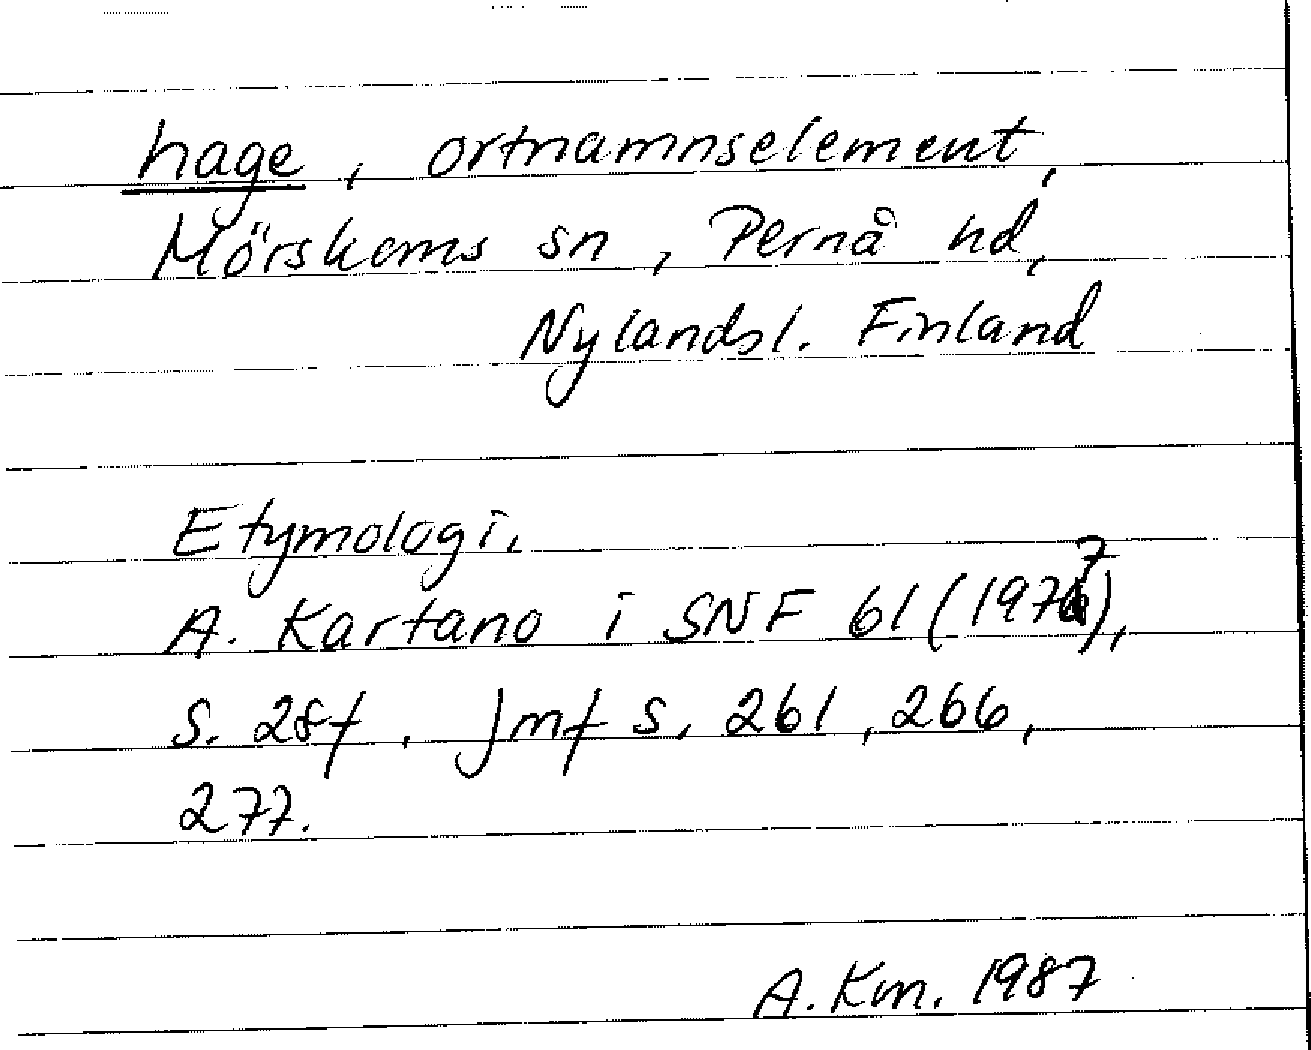 hage, ortnamnselement,
Mörskoms sn, Pernå hd,
Nylandsl. Finland
Etymologi.
A. Kartano i SNF 61 (1977),
s. 28f. Jmf s. 261, 266,
277.
A. Km. 1987